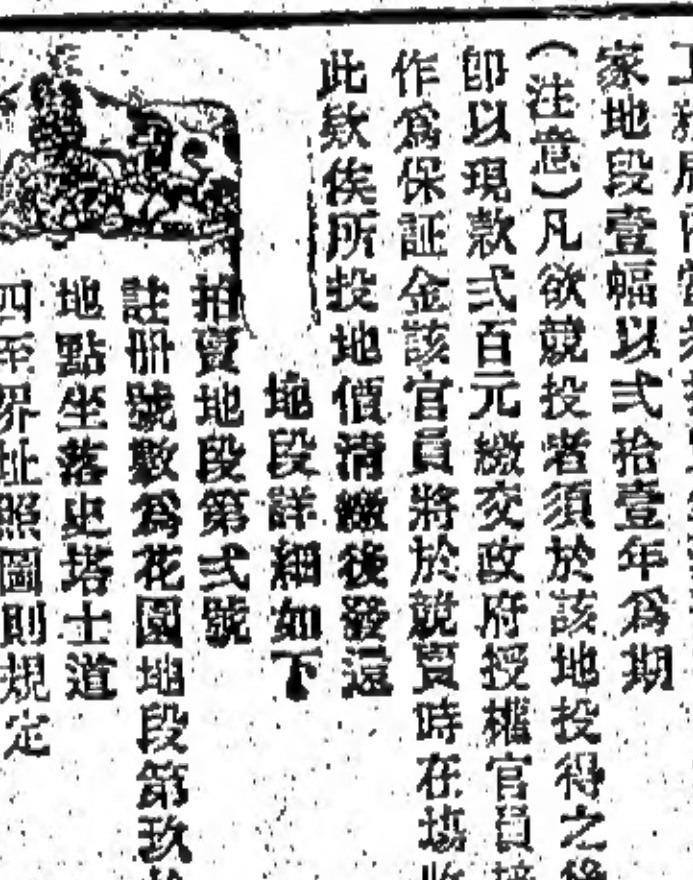 家地段壹幅以弍拾壹年為期
(注意)凡欲競投者須於該地投得之後
卽以現款弍百元繳交政府授權官員
作為保証金該官員將於競賣時在塲收
此欵俟所投地價清繳後發還
地段詳細如下
拍賣地段第弍號
註册號數為花園地段第玖
地點坐落史塔士道
四至界址照圖則規定